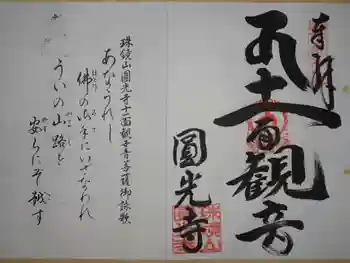 奉拝
十一面観音
圓光寺
珠鏡山圓光寺十一面観世音菩薩御詠歌
あなうれし
佛の御手にいざなわれ
ういの山路を
安らにぞ越す